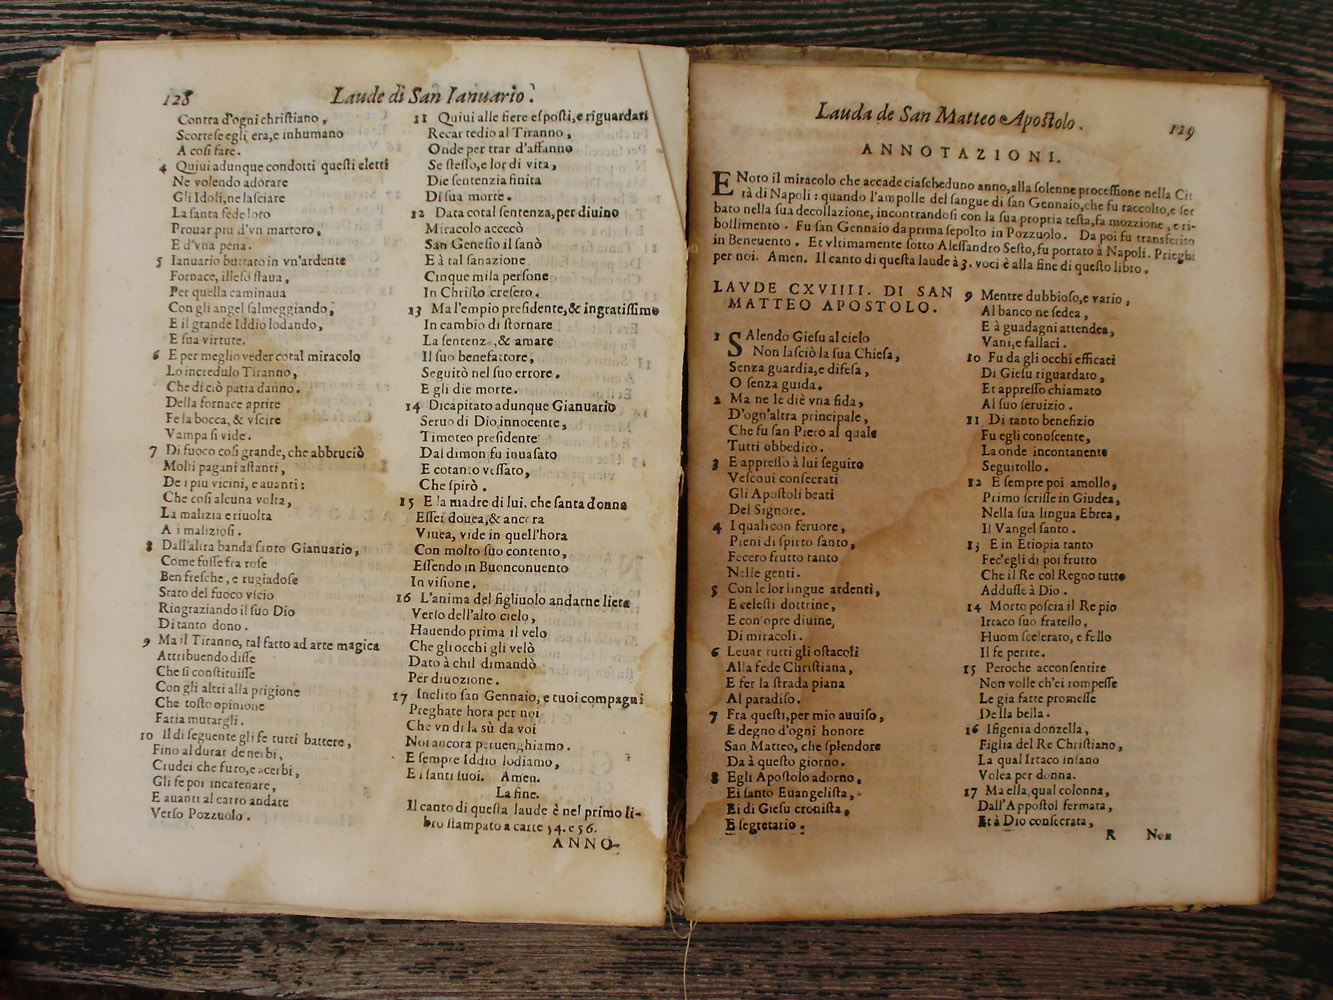 128
Laude di San Ianuario.
Contra d'ogni christiano,
Scortese egli era, e inhumano
A cosi fare.
4 Quiui adunque condotti questi eletti
Ne volendo adorare
Gli Idoli, ne lasciare
La santa fede loro
Prouar piu d'vn martoro,
E d'vna pena.
5 Ianuario buttato in vn'ardente
Fornace, illeso staua,
Per quella caminaua
Con gli angel salmeggiando,
E il grande Iddio lodando,
E sua virtute.
6 E per meglio veder cotal miracolo
Lo incredulo Tiranno,
Che di ciò patia danno.
Della fornace aprire
Fe la bocca, & vscire
Vampa si vide.
7 Di fuoco cosi grande, che abbruciò
Molti pagani astanti,
De i piu vicini, e auanti:
Che cosi alcuna volta,
La malizia e riuolta
A i maliziosi.
8 Dall'altra banda santo Gianuario,
Come fusse fra rose
Ben fresche, e rugiadose
Stato del fuoco vscio
Ringraziando il suo Dio
Di tanto dono.
9 Ma il Tiranno, tal fatto ad arte magica
Attribuendo disse
Che si constituisse
Con gli altri alla prigione
Che tosto opinione
Faria mutargli.
10 Il di seguente gli fe tutti battere,
Fino al durar de nerbi,
Crudei che furo, e acerbi,
Gli fe poi incatenare,
E auanti al carro andare
Verso Pozzuolo.
11 Quiui alle fiere esposti, e riguardati
Recar tedio al Tiranno,
Onde per trar d'affanno
Se stesso, e lor di vita,
Die sentenzia finita
Di sua morte.
12 Data cotal sentenza, per diuino
Miracolo accecò
San Genesio il sanò
E à tal sanazione
Cinque mila persone
In Christo cresero.
13 Ma l'empio presidente, & ingratissimo
In cambio di stornare
La sentenz, & amare
Il suo benefattore,
Seguitò nel suo errore.
E gli die morte.
14 Dicapitato adunque Gianuario
Seruo di Dio innocente,
Timoteo presidente
Dal dimon fu inuasato
E cotanto vessato,
Che spirò.
15 E la madre di lui. che santa donna
Esser douea, & ancora
Viuea, vide in quell'hora
Con molto suo contento,
Essendo in Buonconuento
In visione.
16 L'anima del figliuolo andarne lieta
Verso dell'alto cielo,
Hauendo prima il velo
Che gli occhi gli velò
Dato à chil dimandò
Per diuozione.
17 Inclito san Gennaio, e tuoi compagni
Preghate hora per noi
Che vn di la sù da voi
Noi ancora peruenghiamo.
E sempre Iddio lodiamo,
E i santi suoi. Amen.
La fine.
Il canto di questa laude è nel primo li-
bro stampato a carte 54. e 56.
ANNO-
Lauda de San Matteo Apostolo.
129
ANNOTAZIONI.
E Noto il miracolo che accade ciascheduno anno, alla solenne processione nella Cit
tà di Napoli: quando l'ampolle del sangue di san Gennaio, che fu raccolto, e ser
bato nella sua decollazione, incontrandosi con la sua propria testa, fa mozzione, e ri-
bollimento. Fu san Gennaio da prima sepolto in Pozzuolo. Da poi fu transferito
in Beneuento. Et vltimamente sotto Alessandro Sesto, fu portato à Napoli. Prieghi
per noi. Amen. Il canto di questa laude à 3. voci è alla fine di questo libro.
LAVDE CXVIIII. DI SAN
MATTEO APOSTOLO.
1 SAlendo Giesu al cielo
Non lasciò la sua Chiesa,
Senza guardia, e difesa,
O senza guida.
2 Ma ne le diè vna fida,
D'ogn'altra principale,
Che fu san Piero al quale
Tutti obbediro.
3 E appresso à lui seguiro
Vescoui consecrati
Gli Apostoli beati
Del Signore.
4 I quali con feruore,
Pieni di spirto santo,
Fecero frutto tanto
Nelle genti.
5 Con le lor lingue ardenti,
E celesti dottrine,
E con opre diuine,
Di miracoli.
6 Leuar tutti gli ostacoli
Alla fede Christiana,
E fer la strada piana
Al paradiso.
7 Fra questi, per mio auuiso,
E degno d'ogni honore
San Matteo, che splendore
Da à questo giorno.
8 Egli Apostolo adorno,
Ei santo Euangelista,
Ei di Giesu cronista,
E segretario.
9 Mentre dubbioso, e vario,
Al banco ne sedea,
E à guadagni attendea,
Vani, e fallaci.
10 Fu da gli occhi efficaci
Di Giesu riguardato,
Et appresso chiamato
Al suo seruizio.
11 Di tanto benefizio
Fu egli conoscente,
La onde incontanente
Seguitollo.
12 E sempre poi amollo,
Primo scrisse in Giudea,
Nella sua lingua Ebrea,
Il Vangel santo.
13 E in Etiopia tanto
Fec'egli di poi frutto
Che il Re col Regno tutto
Addusse à Dio.
14 Morto poscia il Re pio
Irtaco suo fratello,
Huom scelerato, e fello
Il fe perire.
15 Peroche acconsentire
Non volle ch'ei rompesse
Le gia fatte promesse
Della bella.
16 Ifigenia donzella,
Figlia del Re Christiano,
La qual Irtaco insano
Volea per donna.
17 Ma ella, qual colonna,
Dall'Appostol fermata,
Et à Dio consecrata,
R Non